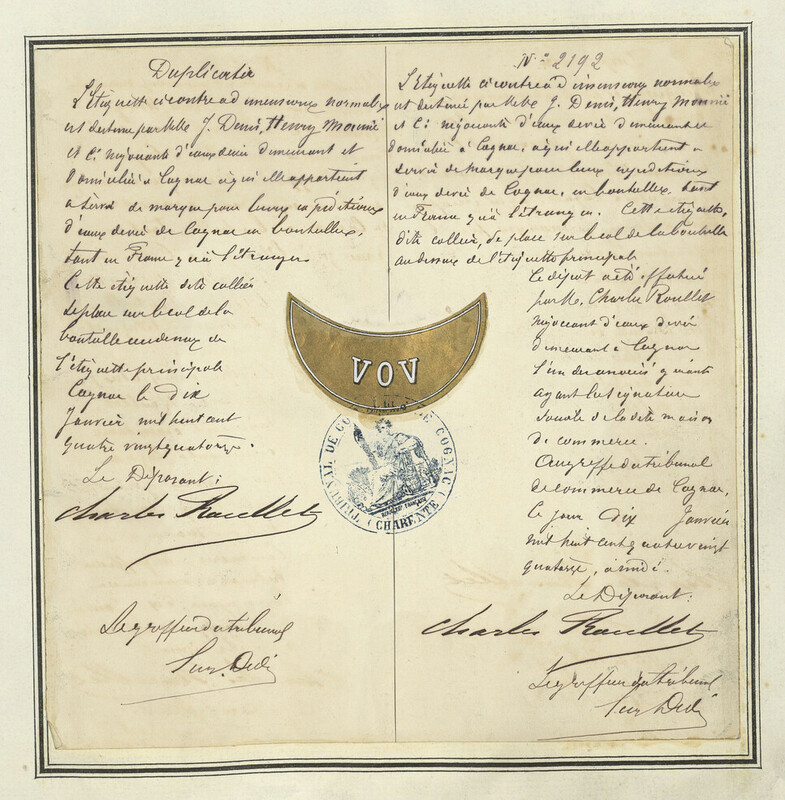 Duplicata
L'Etiquette ci contre a dimensions normales
est destinée par MMrs J. Denis, Henry Mounié
et Cie négociants d'eaux de vie demeurant et
domiciliés à Cognac à qui elle appartient
a servir de marque pour leurs expéditions
d'eaux de vie de Cognac en bouteilles,
tant en France qu'à l'étranger
Cette étiquette dite collier
se place sur le col de la
bouteille au dessus de
l'étiquette principale
Cognac le dix
Janvier mil huit cent
quatre vingt quatorze.
Le Déposant:
Charles Roullet
Le greffier du tribunal
N° 2192
L'Etiquette ci contre a dimensions normales
est destinée par MMrs J. Denis, Henry Mounié
et Cie négociants d'eaux de vie demeurant et
domiciliés à Cognac, à qui elle appartient a
servir de marque pour leurs expéditions
d'eaux de vie de Cognac, en bouteilles, tant
en France qu'à l'étranger. Cette étiquette,
dite collier, se place sur le col de la bouteille
au dessus de l'étiquette principale
Le dépôt a été effectué
par M. Charles Roullet
négociant d'eaux de vie
demeurant à Cognac
l'un des associés gérants
ayant la signature
sociale de la dite maison
de commerce.
Au greffe du tribunal
de commerce de Cognac,
le jour dix Janvier
mil huit cent quatre vingt
quatorze, à midi.
Le Déposant:
Charles Roullet
Le greffier du tribunal
VOV
TRIBUNAL DE COMMERCE DE COGNAC
(CHARENTE)